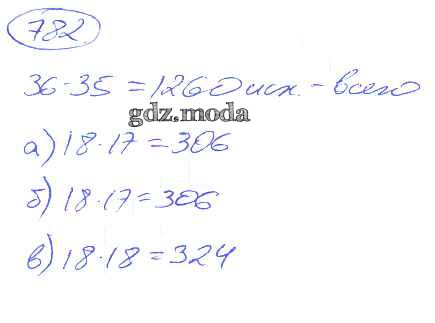 782
36·35 = 1260 исх. - всего
gdz.moda
а) 18·17 = 306
б) 18·17 = 306
в) 18·18 = 324